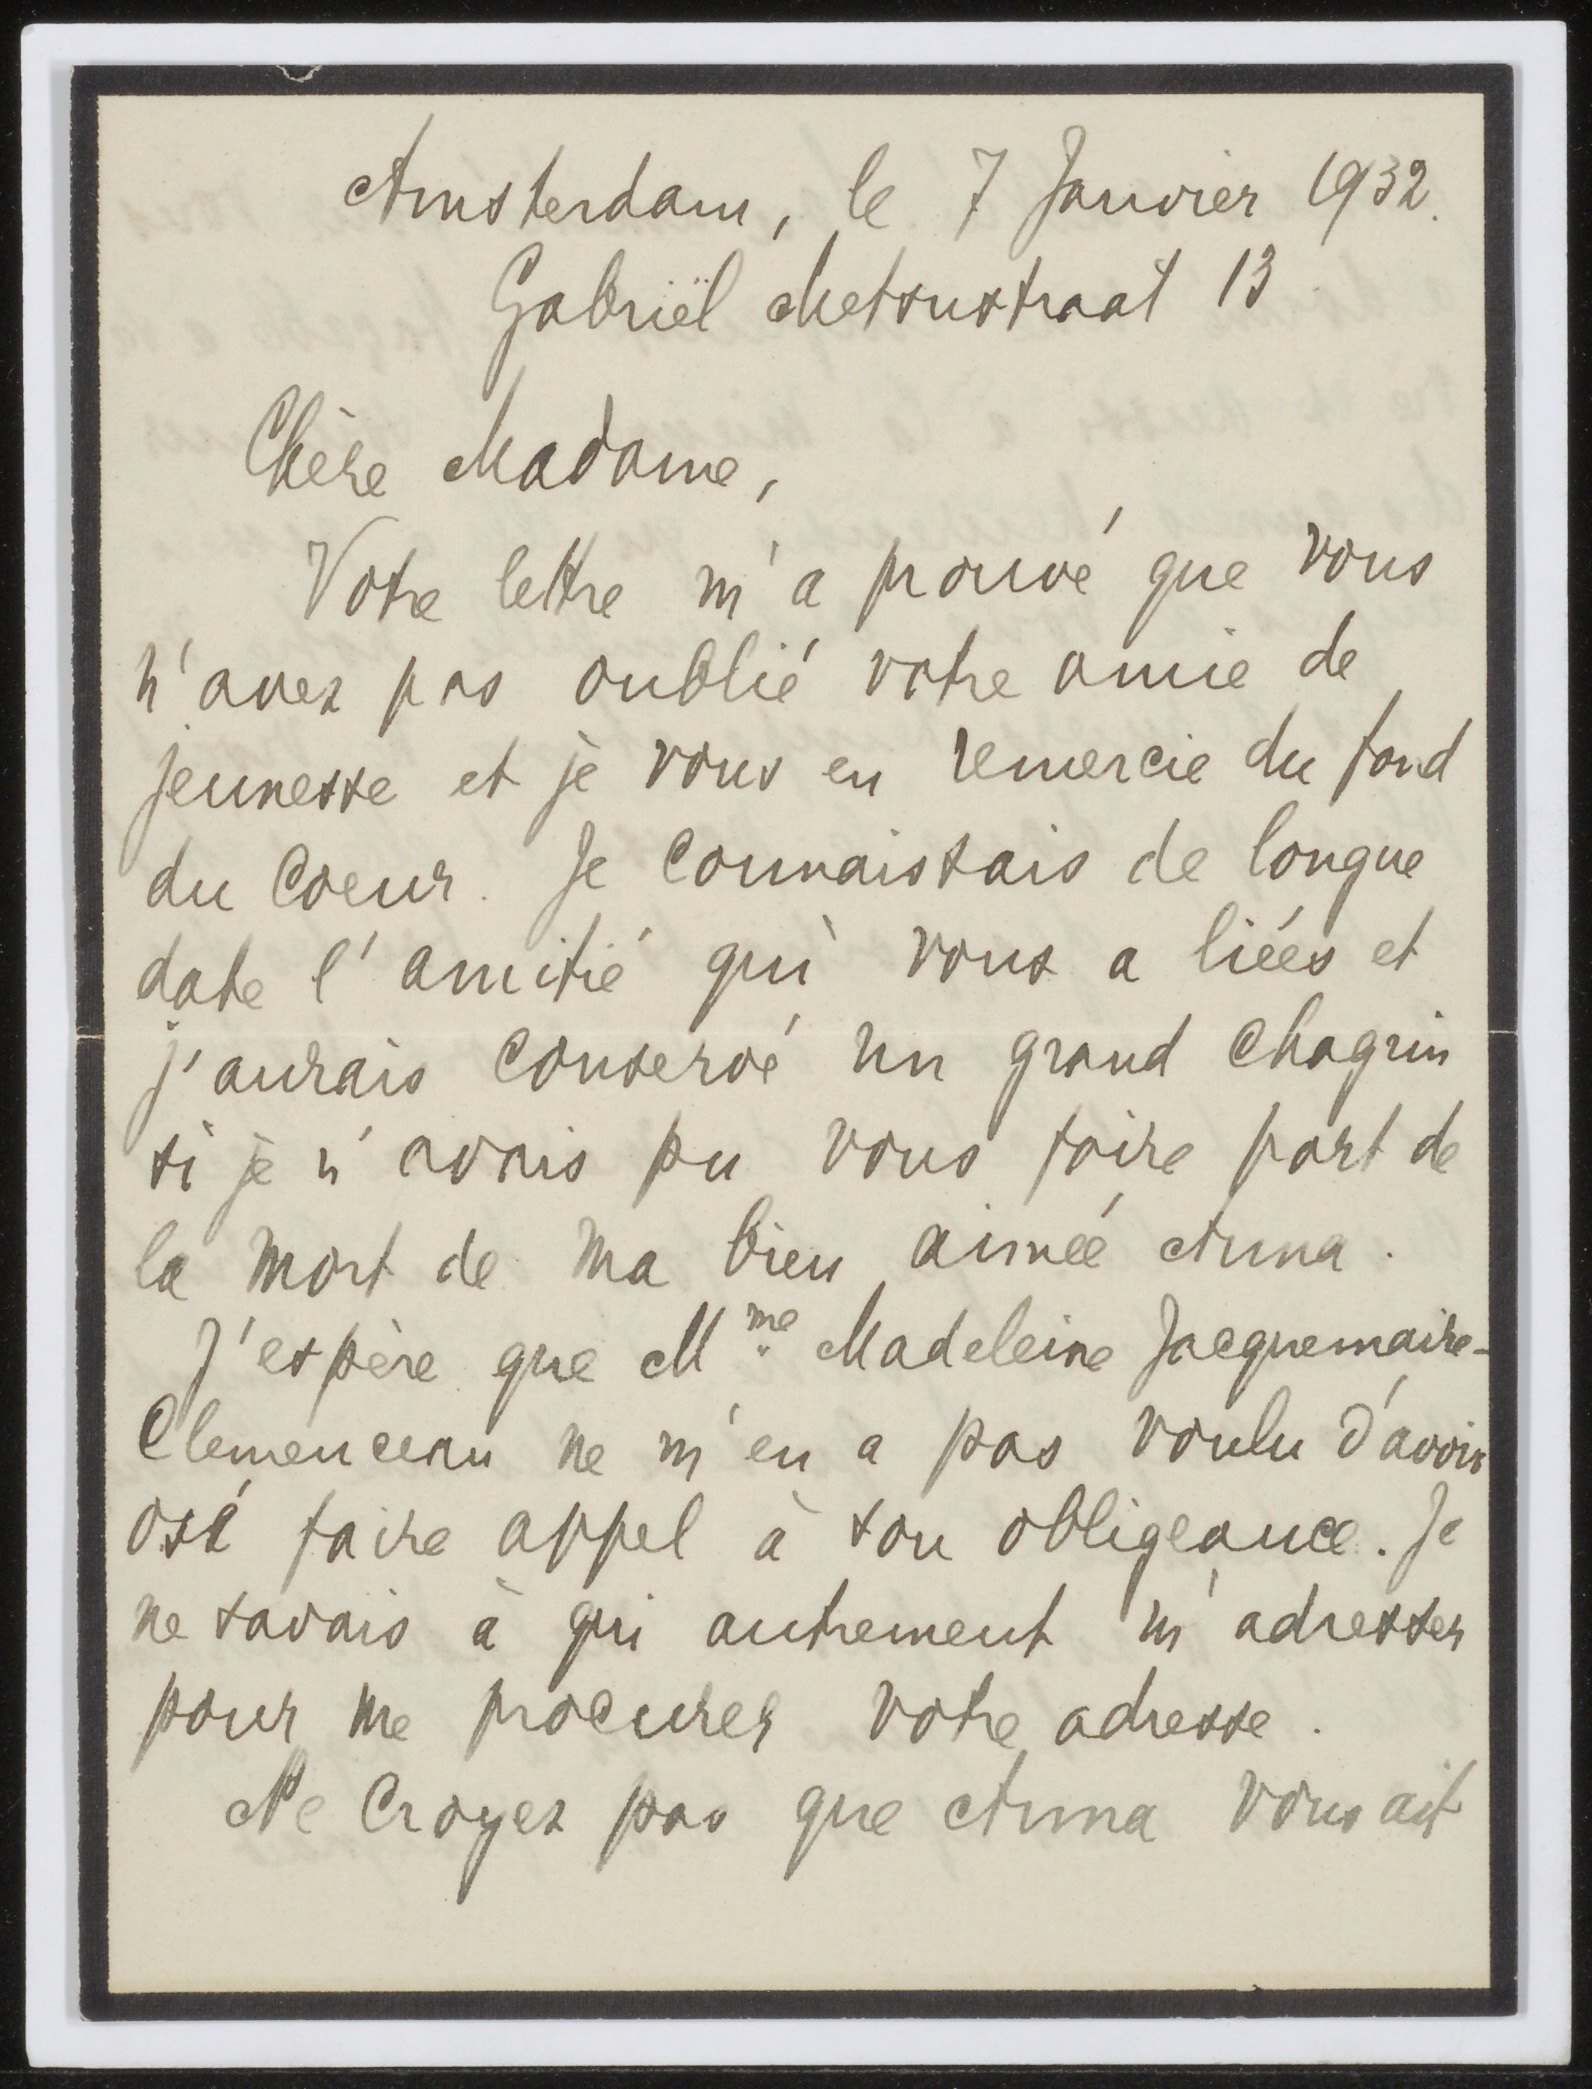 Amsterdam, le 7 Janvier 1932.
Gabriël Metsustraat 13
Chère Madame,
Votre lettre m'a prouvé que vous
n'avez pas oublié votre amie de
jeunesse et je vous en remercie du fond
du coeur. Je connaissais de longue
date l'amitié qui vous a liées et
j'aurais conservé un grand chagrin
si je n'avais pu vous faire part de
la mort de ma bien aimée Anna.
J'espère que Mme Madeleine Jacquemaire-
Clemenceau ne m'en a pas voulu d'avoir
osé faire appel à son obligeance. Je
ne savais à qui autrement m'adresser
pour me procurer votre adresse.
Ne croyez pas que Anna vous ait